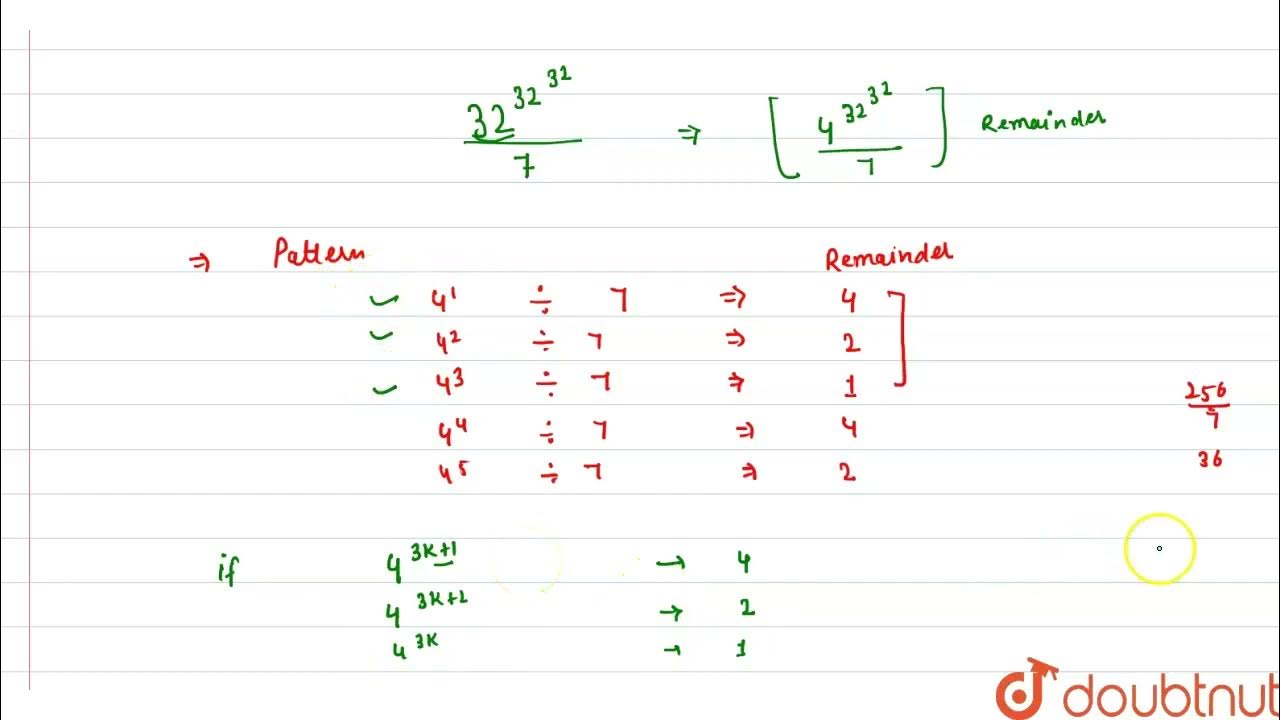 32^32^32 / 7 ⇒ [ 4^32^32 / 7 ] Remainder
⇒ Pattern Remainder
4^1 ÷ 7 ⇒ 4
4^2 ÷ 7 ⇒ 2
4^3 ÷ 7 ⇒ 1
4^4 ÷ 7 ⇒ 4
4^5 ÷ 7 ⇒ 2
256 / 7
36
if 4^3K+1 → 4
4^3K+2 → 2
4^3K → 1
doubtnut